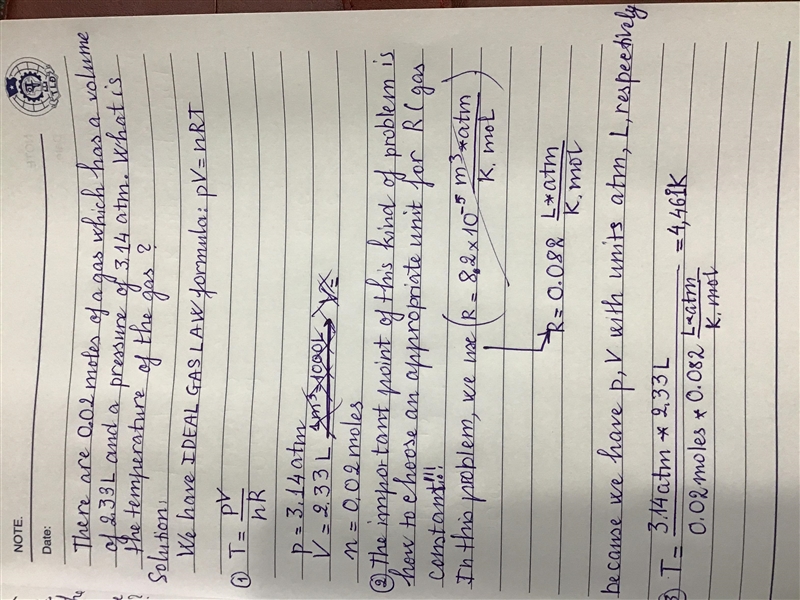 NOTE.
Date:
There are 0.02 moles of a gas which has a volume
of 2.33L and a pressure of 3.14 atm. What is
the temperature of the gas?
Solution:
We have IDEAL GAS LAW formula: pV = nRT
① T = pV / nR
P = 3.14 atm
V = 2.33 L 1m³ = 1000L → V =
n = 0,02 moles
② The important point of this kind of problem is
how to choose an appropriate unit for R (gas
constant!!!
In this problem, we use (R = 8.2 x 10⁻⁵ m³*atm / K.mol)
R = 0.082 L*atm / K.mol
because we have p, V with units atm, L, respectively
③ T = 3.14 atm * 2,33 L / 0.02 moles * 0.082 L*atm / K.mol = 4,461K